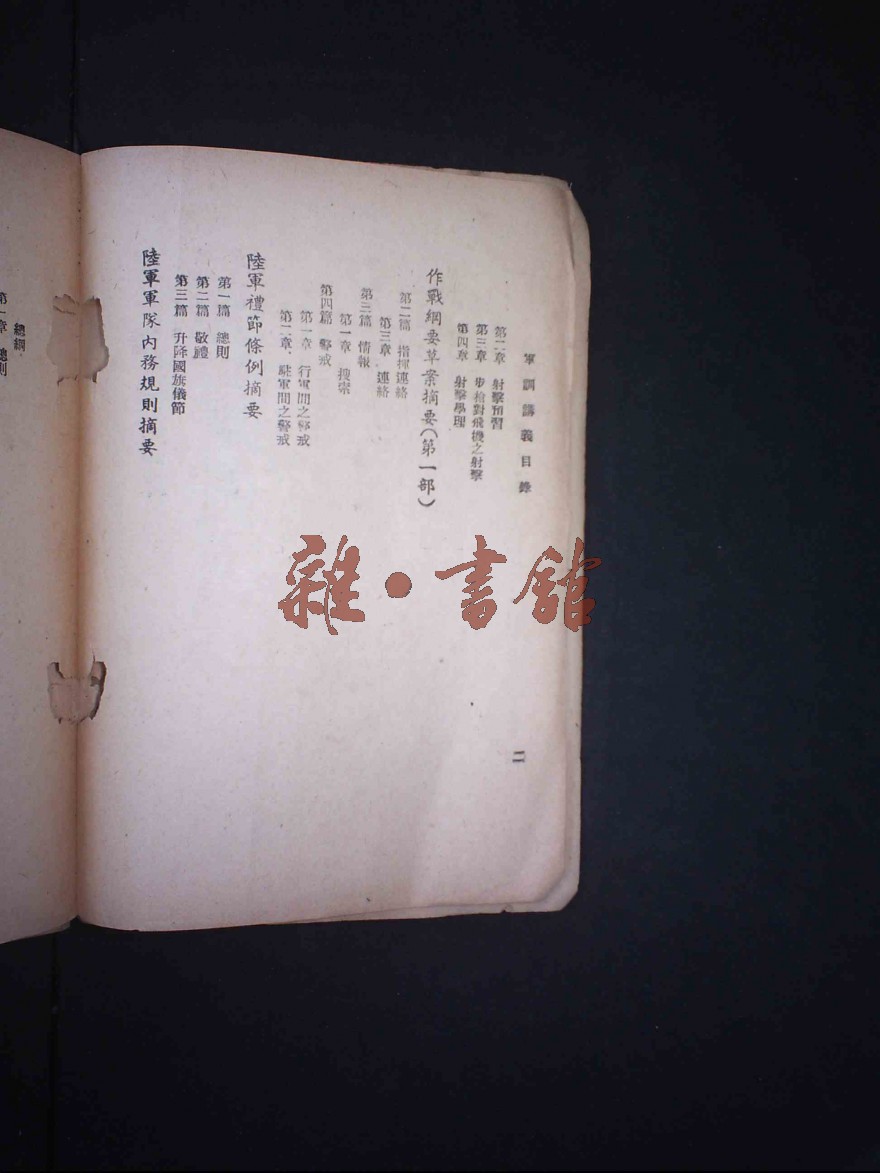 軍訓講義目錄
第二章 射擊預習
第三章 步槍對飛機之射擊
第四章 射擊學理
作戰綱要草案摘要(第一部)
第二篇 指揮連絡
第三章 連絡
第三篇 情報
第一章 搜索
第四篇 警戒
第一章 行軍間之警戒
第二章、駐軍間之警戒
陸軍禮節條例摘要
第一篇 總則
第二篇 敬禮
第三篇 升降國旗儀節
陸軍軍隊內務規則摘要
二
總綱
第一章 總則
雜·書館